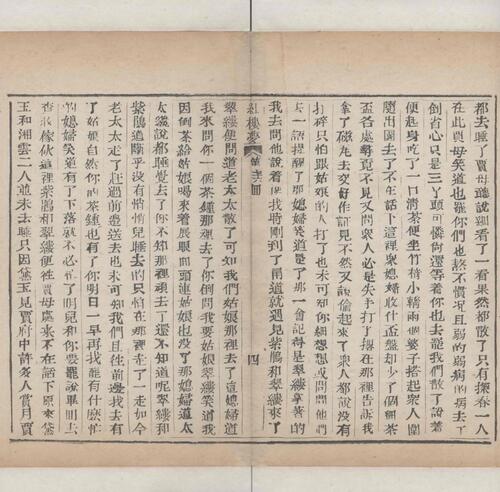 都去睡了賈母聽說細看了一看果然都散了只有探春一人
在此賈母笑道也罷你們也熬不慣況且弱的弱病的病去了
倒省心只是三丫頭可憐尚還等着你也去罷我們散了說着
便起身吃了一口清茶便坐竹椅小轎兩個婆子搭起衆人圍
隨出園去了不在話下這裡衆媳婦收什盃盤却少了個細茶
盃各處尋覓不見又問衆人必是失手打了撂在那裡告訴我
拿了磁瓦去交好作証見不然又說偷起來了衆人都說沒有
打碎只怕跟姑娘的人打了也未可知你細想想或問問他們
去一語提醒了那媳婦笑道是了那一會記得是翠縷拿着的
我去問他說着便找時剛到了甬道就遇見紫鵑和翠縷來了
紅樓夢 第 回 四
翠縷便問道老太太散了可知我們姑娘那裡去了這媳婦道
我來問你一個茶鍾那裡去了你倒問我要姑娘翠縷笑道我
因倒茶給姑娘喝來着展眼回頭連姑娘也沒了那媳婦道太
太纔說都睡覺去了你不知那裡頑去了還不知道呢翠縷和
紫鵑道斷乎沒有悄悄兒睡去的只怕在那裡走了一走如今
老太太走了赶過前邊送去也未可知我們且往前邊找去有
了姑娘自然你的茶鍾也有了你明日一早再找罷有什麽忙
的媳婦笑道有了下落就不必忙了明兒和你要罷說畢回去
查收傢伙這裡紫鵑和翠縷便往賈母處來不在話下原來黛
玉和湘雲二人並未去睡只因黛玉見賈府中許多人賞月賈